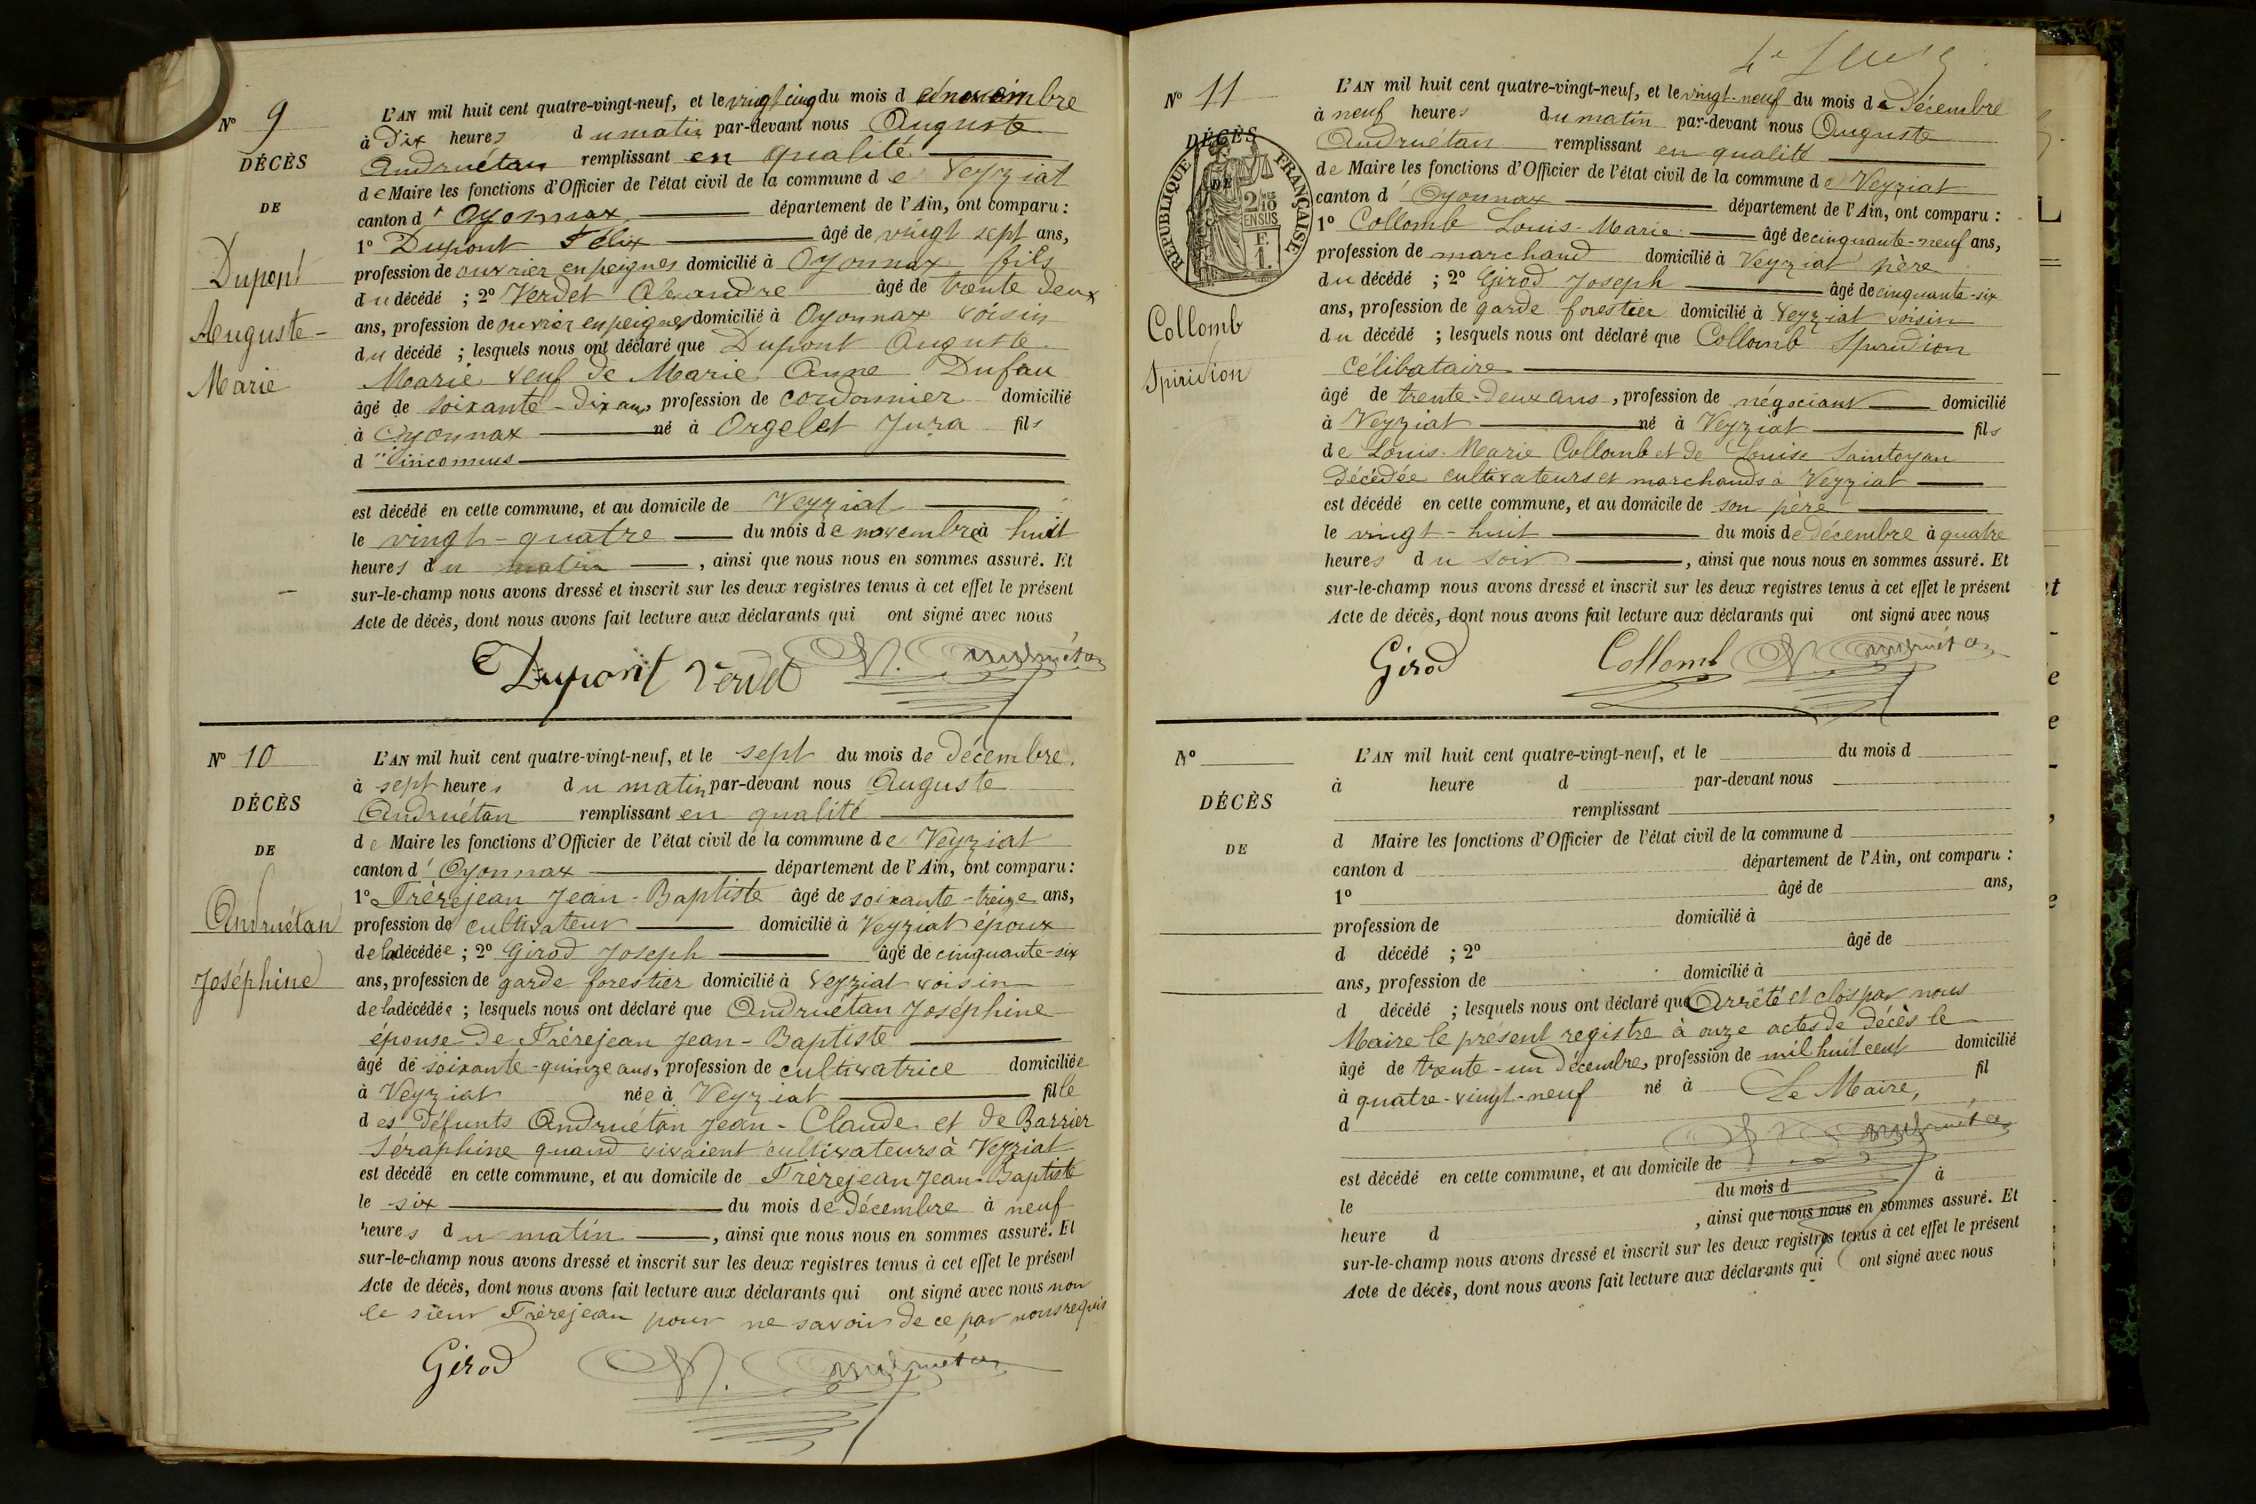 N° 9
DÉCÈS
DE
Dupont
Auguste-
Marie
L'AN mil huit cent quatre-vingt-neuf, et le vingt cinq du mois de novembre
à Dix heures du matin par-devant nous Auguste
Andruétan remplissant en qualité
de Maire les fonctions d'Officier de l'état civil de la commune de Veyziat
canton d'Oyonnax département de l'Ain, ont comparu :
1° Dupont Félix âgé de vingt sept ans,
profession de ouvrier en peignes domicilié à Oyonnax fils
du décédé ; 2° Verdet Alexandre âgé de trente deux
ans, profession de ouvrier en peignes domicilié à Oyonnax voisin
du décédé ; lesquels nous ont déclaré que Dupont Auguste
Marie veuf de Marie Anne Dufau
âgé de soixante-dix ans, profession de cordonnier domicilié
à Oyonnax né à Orgelet Jura fils
d'inconnus
est décédé en cette commune, et au domicile de Veyziat
le vingt-quatre du mois de novembre à huit
heures du matin, ainsi que nous nous en sommes assuré. Et
sur-le-champ nous avons dressé et inscrit sur les deux registres tenus à cet effet le présent
Acte de décès, dont nous avons fait lecture aux déclarants qui ont signé avec nous
Dupont Verdet A. Andruétan
N° 10
DÉCÈS
DE
Andruétan
Joséphine
L'AN mil huit cent quatre-vingt-neuf, et le sept du mois de Décembre
à sept heures du matin par-devant nous Auguste
Andruétan remplissant en qualité
de Maire les fonctions d'Officier de l'état civil de la commune de Veyziat
canton d'Oyonnax département de l'Ain, ont comparu :
1° Frèrejean Jean-Baptiste âgé de soixante-treize ans,
profession de cultivateur domicilié à Veyziat époux
de la décédée ; 2° Girod Joseph âgé de cinquante-six
ans, profession de garde forestier domicilié à Veyziat voisin
de la décédée ; lesquels nous ont déclaré que Andruétan Joséphine
épouse de Frèrejean Jean-Baptiste
âgé de soixante-quinze ans, profession de cultivatrice domiciliée
à Veyziat née à Veyziat fille
des défunts Andruétan Jean-Claude et de Barrier
Séraphine quand vivaient cultivateurs à Veyziat
est décédé en cette commune, et au domicile de Frèrejean Jean-Baptiste
le six du mois de Décembre à neuf
heures du matin, ainsi que nous nous en sommes assuré. Et
sur-le-champ nous avons dressé et inscrit sur les deux registres tenus à cet effet le présent
Acte de décès, dont nous avons fait lecture aux déclarants qui ont signé avec nous non
le sieur Frèrejean pour ne savoir de ce par nous requis
Girod A. Andruétan
N° 11
DÉCÈS
DE
RÉPUBLIQUE FRANÇAISE
2/10 EN SUS
F.
1.
Collomb
Spiridion
L'AN mil huit cent quatre-vingt-neuf, et le vingt-neuf du mois de Décembre
à neuf heures du matin par-devant nous Auguste
Andruétan remplissant en qualité
de Maire les fonctions d'Officier de l'état civil de la commune de Veyziat
canton d'Oyonnax département de l'Ain, ont comparu :
1° Collomb Louis-Marie âgé de cinquante-neuf ans,
profession de marchand domicilié à Veyziat père
du décédé ; 2° Girod Joseph âgé de cinquante-six
ans, profession de garde forestier domicilié à Veyziat voisin
du décédé ; lesquels nous ont déclaré que Collomb Spiridion
Célibataire
âgé de trente-deux ans, profession de négociant domicilié
à Veyziat né à Veyziat fils
de Louis-Marie Collomb et de Louise Saintoyan
Décédée cultivateurs et marchands à Veyziat
est décédé en cette commune, et au domicile de son père
le vingt-huit du mois de Décembre à quatre
heures du soir, ainsi que nous nous en sommes assuré. Et
sur-le-champ nous avons dressé et inscrit sur les deux registres tenus à cet effet le présent
Acte de décès, dont nous avons fait lecture aux déclarants qui ont signé avec nous
Girod Collomb A. Andruétan
N°
DÉCÈS
DE
L'AN mil huit cent quatre-vingt-neuf, et le du mois d
à heure d par-devant nous
remplissant
d Maire les fonctions d'Officier de l'état civil de la commune d
canton d département de l'Ain, ont comparu :
1° âgé de ans,
profession de domicilié à
d décédé ; 2° âgé de
ans, profession de domicilié à
d décédé ; lesquels nous ont déclaré que Arrêté et clos par nous
Maire le présent registre à onze actes de décès le
âgé de trente-un Décembre, profession de mil huit cent domicilié
à quatre-vingt-neuf né à Le Maire, fil
d A. Andruétan
est décédé en cette commune, et au domicile de
le du mois d à
heure d , ainsi que nous nous en sommes assuré. Et
sur-le-champ nous avons dressé et inscrit sur les deux registres tenus à cet effet le présent
Acte de décès, dont nous avons fait lecture aux déclarants qui ont signé avec nous